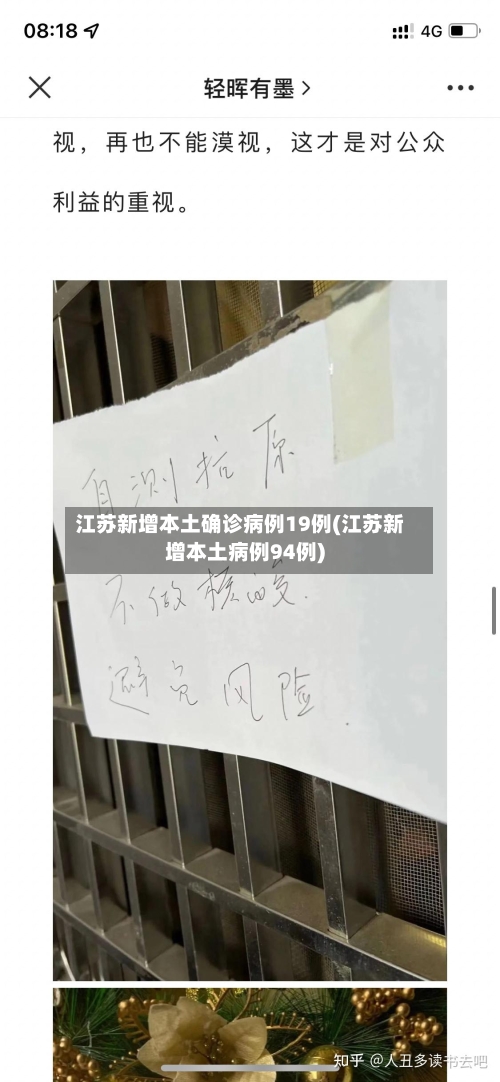 08:18
4G
轻晖有墨
视，再也不能漠视，这才是对公众
利益的重视。
自测抗原
江苏新增本土确诊病例19例(江苏新
增本土病例94例)
不做核酸.
避免风险.
知乎 @人丑多读书去吧